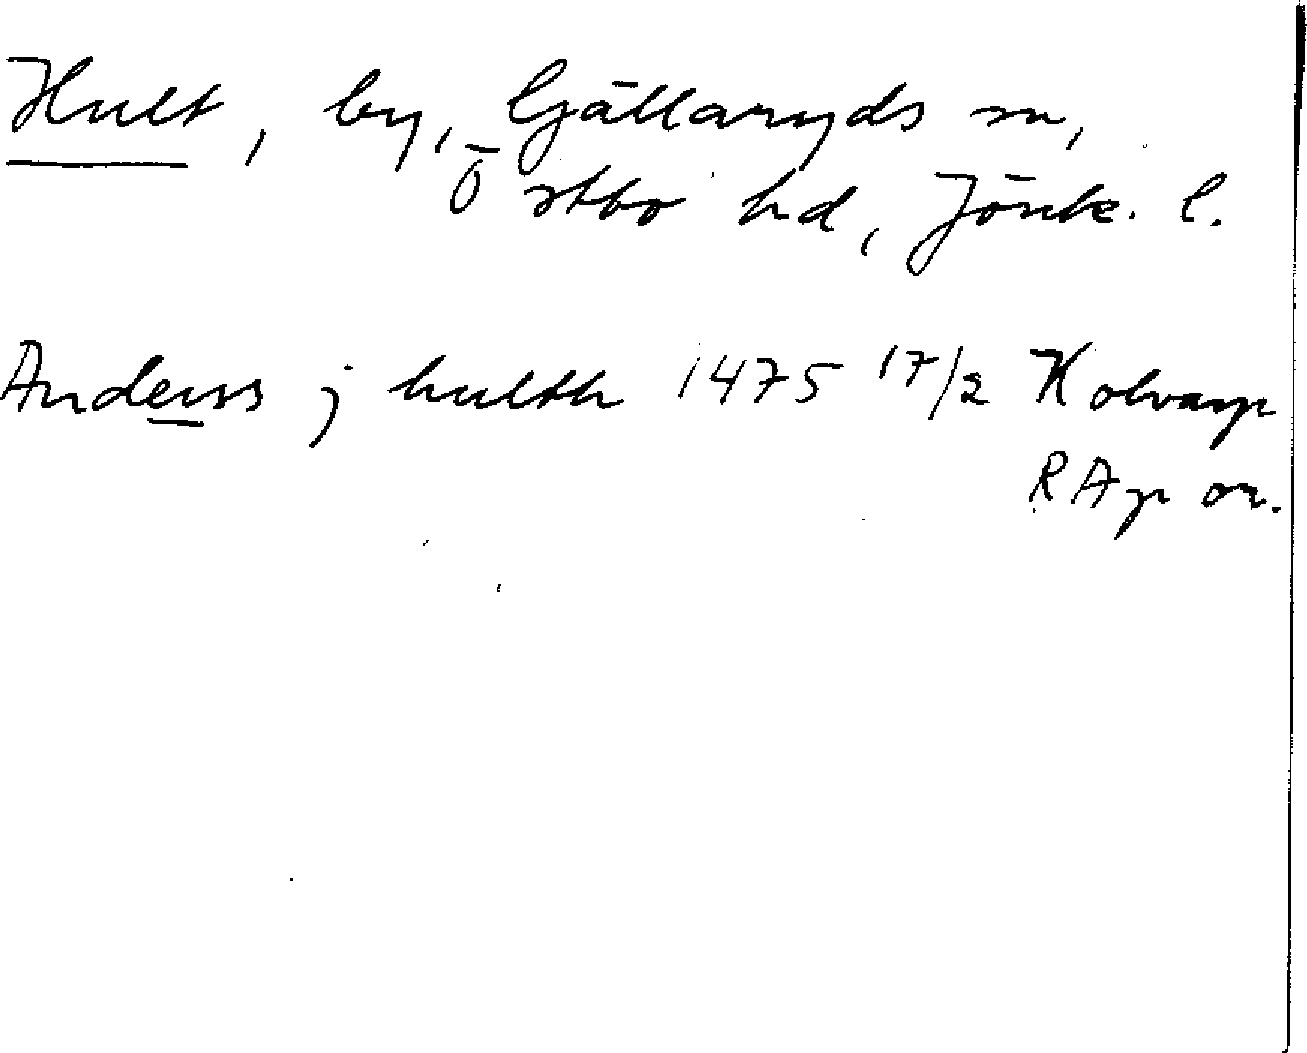 Hult, by, Gällaryds sn,
Östbo hd, Jönk. l.
Anderss j hulth 1475 17/2 Kolvarp
RAp or.